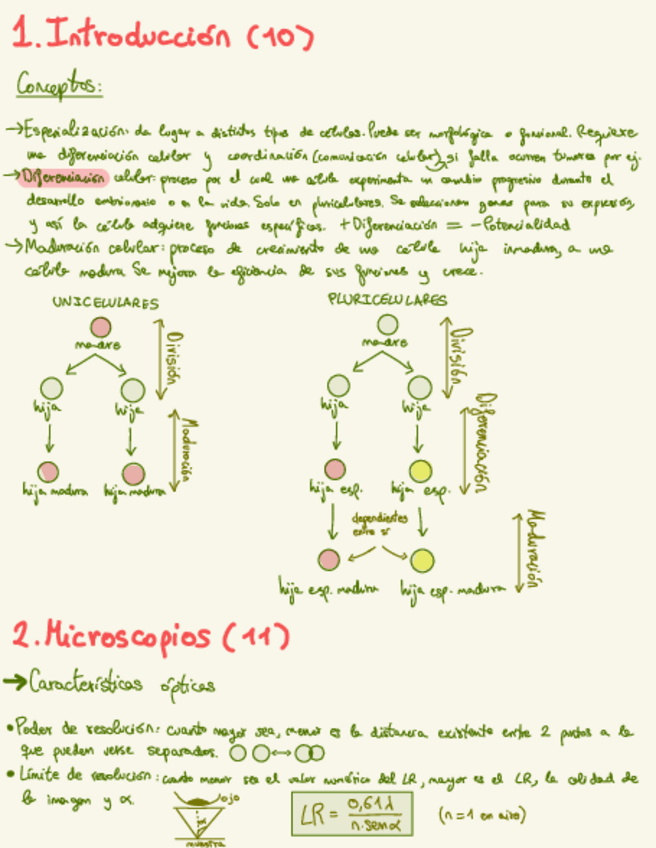 1. Introducción (10)
Conceptos:
→Especialización: da lugar a distintos tipos de células. Puede ser morfológica o funcional. Requiere
una diferenciación celular y coordinación (comunicación celular), si falla ocurren tumores por ej.
→Diferenciación celular: proceso por el cual una célula experimenta un cambio progresivo durante el
desarrollo embrionario o en la vida. Solo en pluricelulares. Se seleccionan genes para su expresión,
y así la célula adquiere funciones específicas. +Diferenciación = -Potencialidad
→Maduración celular: proceso de crecimiento de una célula hija inmadura, a una
célula madura. Se mejora la eficiencia de sus funciones y crece.
UNICELULARES
madre
División
hija hija
Maduración
hija madura hija madura
PLURICELULARES
madre
División
hija hija
Diferenciación
hija esp. hija esp.
dependientes
entre sí
Maduración
hija esp. madura hija esp. madura
2. Microscopios (11)
→Características ópticas
• Poder de resolución: cuanto mayor sea, menor es la distancia existente entre 2 puntos a la
que pueden verse separados.
• Límite de resolución: cuando menor sea el valor numérico del LR, mayor es el LR, la calidad de
la imagen y α.
ojo
muestra
LR = 0,61λ / n·senα (n=1 en aire)